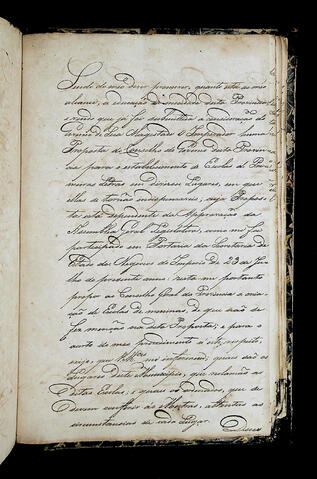 Sendo do meu dever promover, quanto está ao meu
alcance, a educação da mocidade desta Provincia,
e visto que já foi submettida á consideração do
Governo de Sua Magestade O Imperador huma
Proposta do Conselho do Governo desta Provin-
cia para o estabelecimento de Escolas de Pri-
meiras Letras em diversos Lugares, em que
ellas se tornão indispensaveis, cuja Propos-
ta está dependente da Approvação da
Assembléa Geral Legislativa, como me foi
participado em Portaria da Secretaria de
Estado dos Negocios do Imperio de 23 de Ju-
lho do presente anno; resta-me portanto
propor ao Conselho Geral da Provincia a cria-
ção de Escolas de meninas, de que não se
fez menção na dita Proposta; e para o
acerto do meu procedimento a este respeito
exijo, que VMces me informem, quaes são os
Lugares deste Municipio, que reclamão as
Ditas Escolas, e quaes os ordenados, que se
devem conferir ás Mestras, attentas as
circumstancias de cada Lugar.